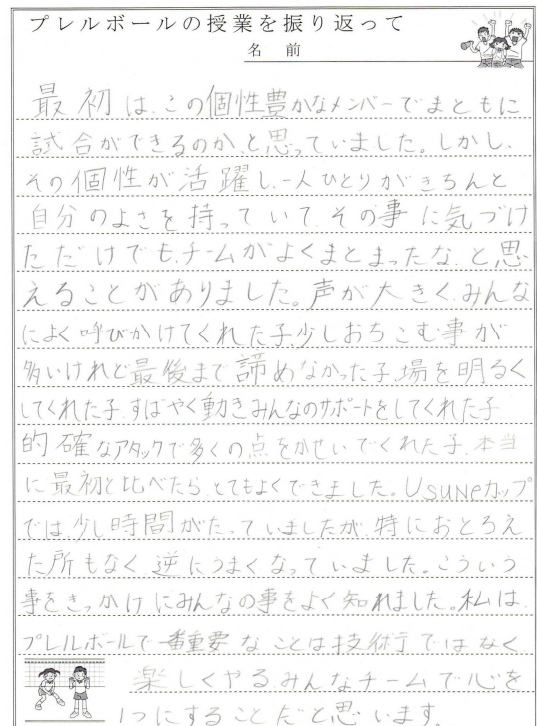 プレルボールの授業を振り返って
名 前
最初は、この個性豊かなメンバーでまともに
試合ができるのか、と思っていました。しかし、
その個性が活躍し、一人ひとりがきちんと
自分のよさを持っていて、その事に気づけ
ただけでも、チームがよくまとまったな、と思
えることがありました。声が大きく、みんな
によく呼びかけてくれた子、少しおちこむ事が
多いけれど最後まで諦めなかった子、場を明るく
してくれた子、すばやく動きみんなのサポートをしてくれた子
的確なアタックで多くの点をかせいでくれた子、本当
に最初と比べたら、とてもよくできました。USUNeカップ
では、少し時間がたっていましたが、特におとろえ
た所もなく逆にうまくなっていました。こういう
事をきっかけにみんなの事をよく知れました。私は、
プレルボールで一番重要なことは技術ではなく
楽しくやる、みんなチームで心を
1つにすることだと思います。